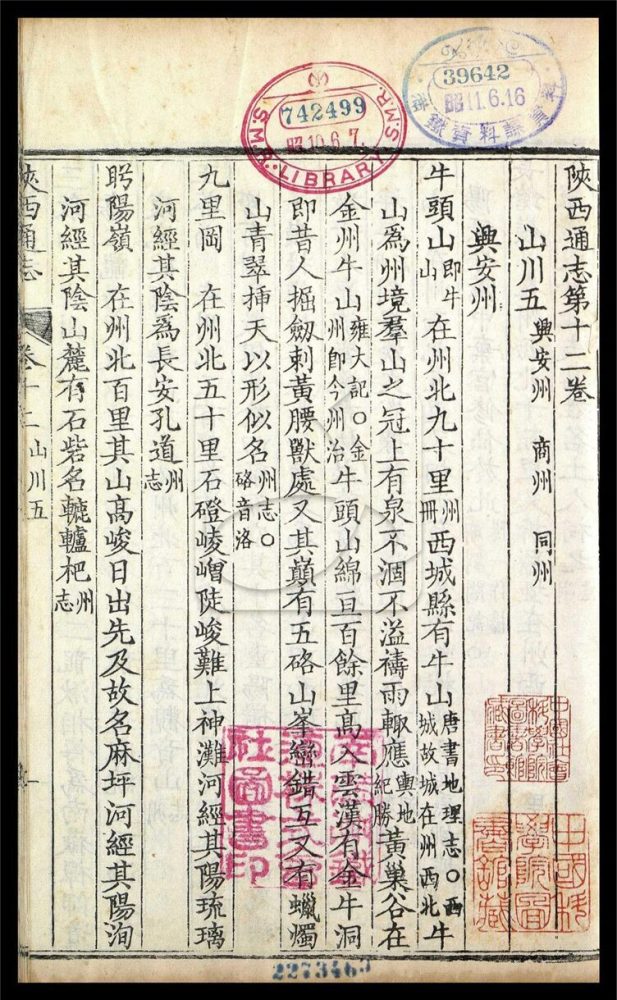 742499
昭10.6.7
S.M.R. LIBRARY S.M.R.
39642
昭11.6.16
陝西通志第十二卷
山川五 興安州 商州 同州
興安州
牛頭山 即牛山 在州北九十里 州冊 西城縣有牛山 唐書地理志○西城故城在州西北 牛
山爲州境羣山之冠上有泉不涸不溢禱雨輒應 輿地紀勝 黃巢谷在
金州牛山 雍大記○金州卽今州治 牛頭山綿亘百餘里高入雲漢有金牛洞
即昔人掘劒刺黃腰獸處又其巔有五硌山峯巒錯互又有蠟燭
山青翠揷天以形似名 州志○硌音洛
九里岡 在州北五十里石磴崚嶒陡峻難上神灘河經其陽琉璃
河經其陰爲長安孔道 州志
陽嶺 在州北百里其山高峻日出先及故名麻坪河經其陽洵
河經其陰山麓有石砦名轆轤杷 州志
陝西通志 卷十二 山川五 一
中國社會科學院圖書館藏書印
中國科學院圖書館藏
社圖書印
2273463